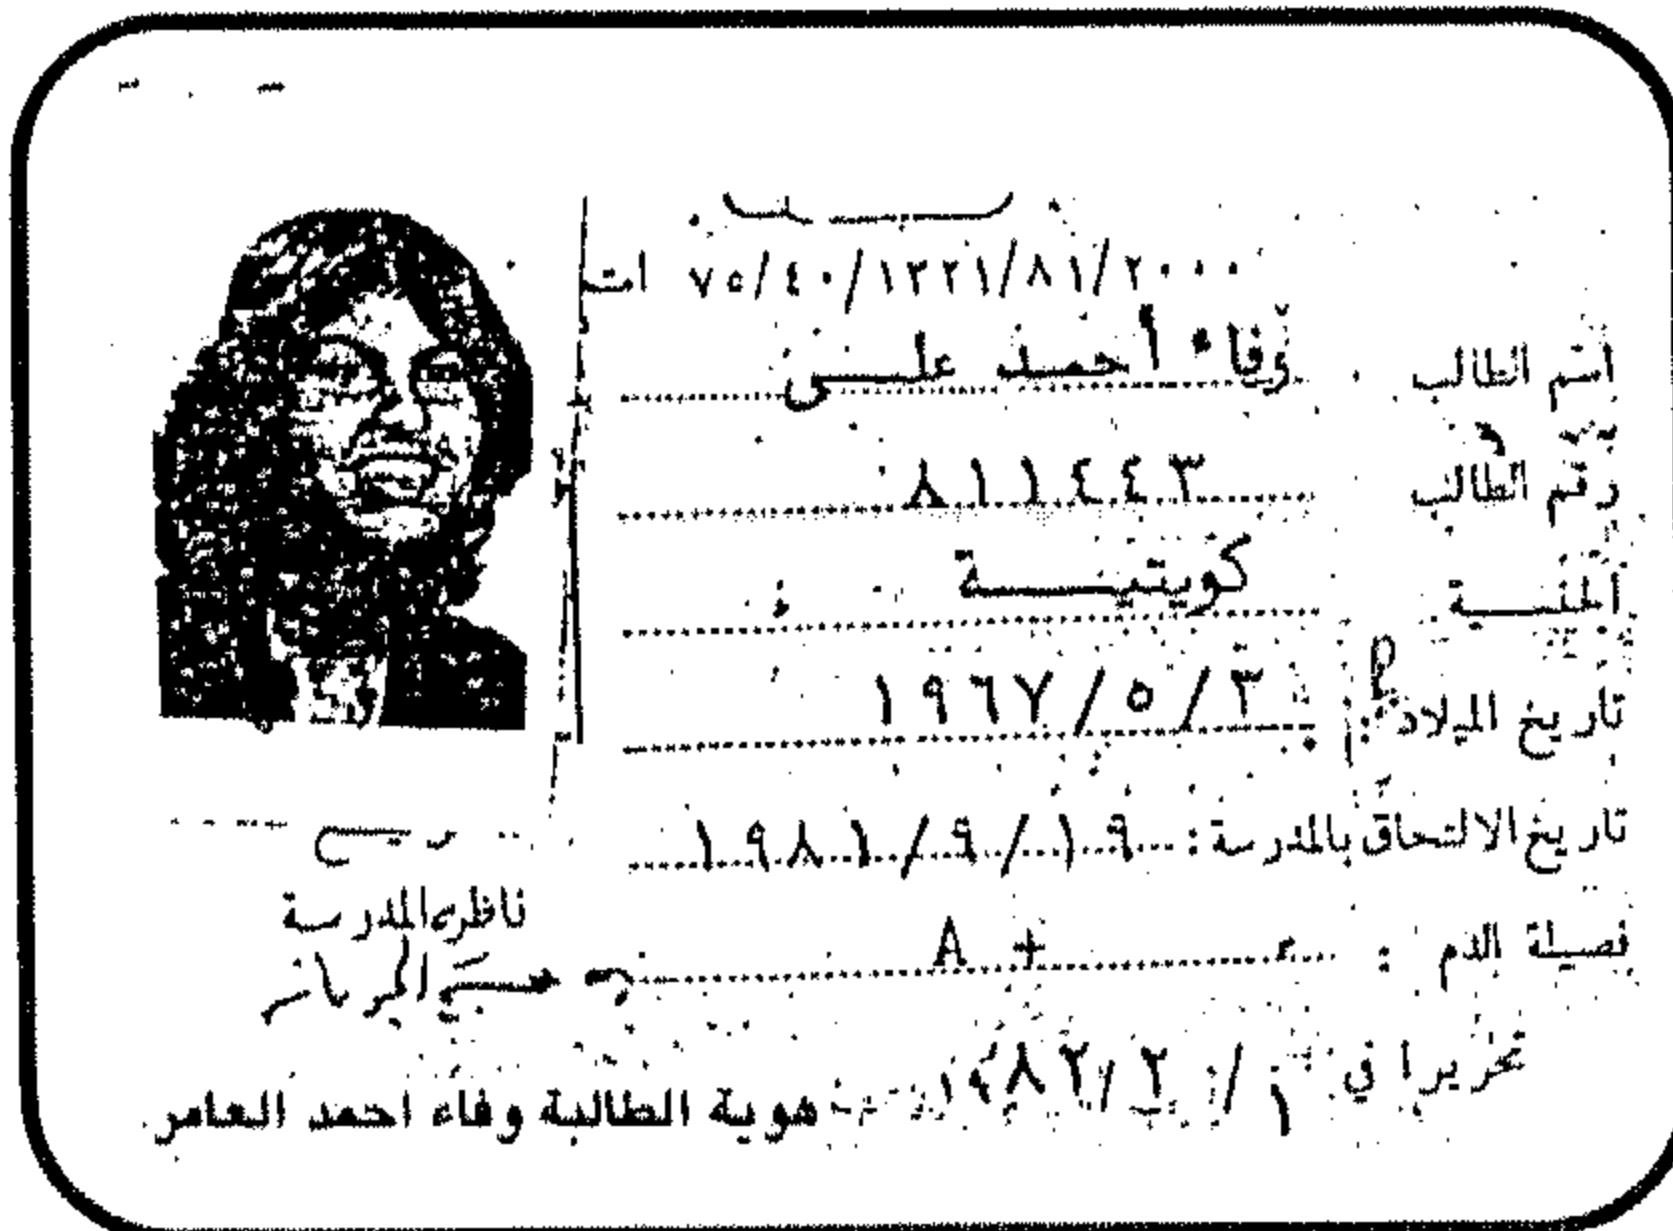 ٧٥/٤٠/١٢٢١/٨١/٢٠٠٠ ات
اسم الطالب : وفاء أحمد علي
رقم الطالب ٨١١٤٤٣
الجنسية كويتية
تاريخ الميلاد : ١٩٦٧/٥/٣
تاريخ الالتحاق بالمدرسة : ١٩٨١/٩/١٩
فصيلة الدم : A +
ناظرة المدرسة
تحريرا في ١٩٨٢/٢/١
هوية الطالبة وفاء احمد العامر